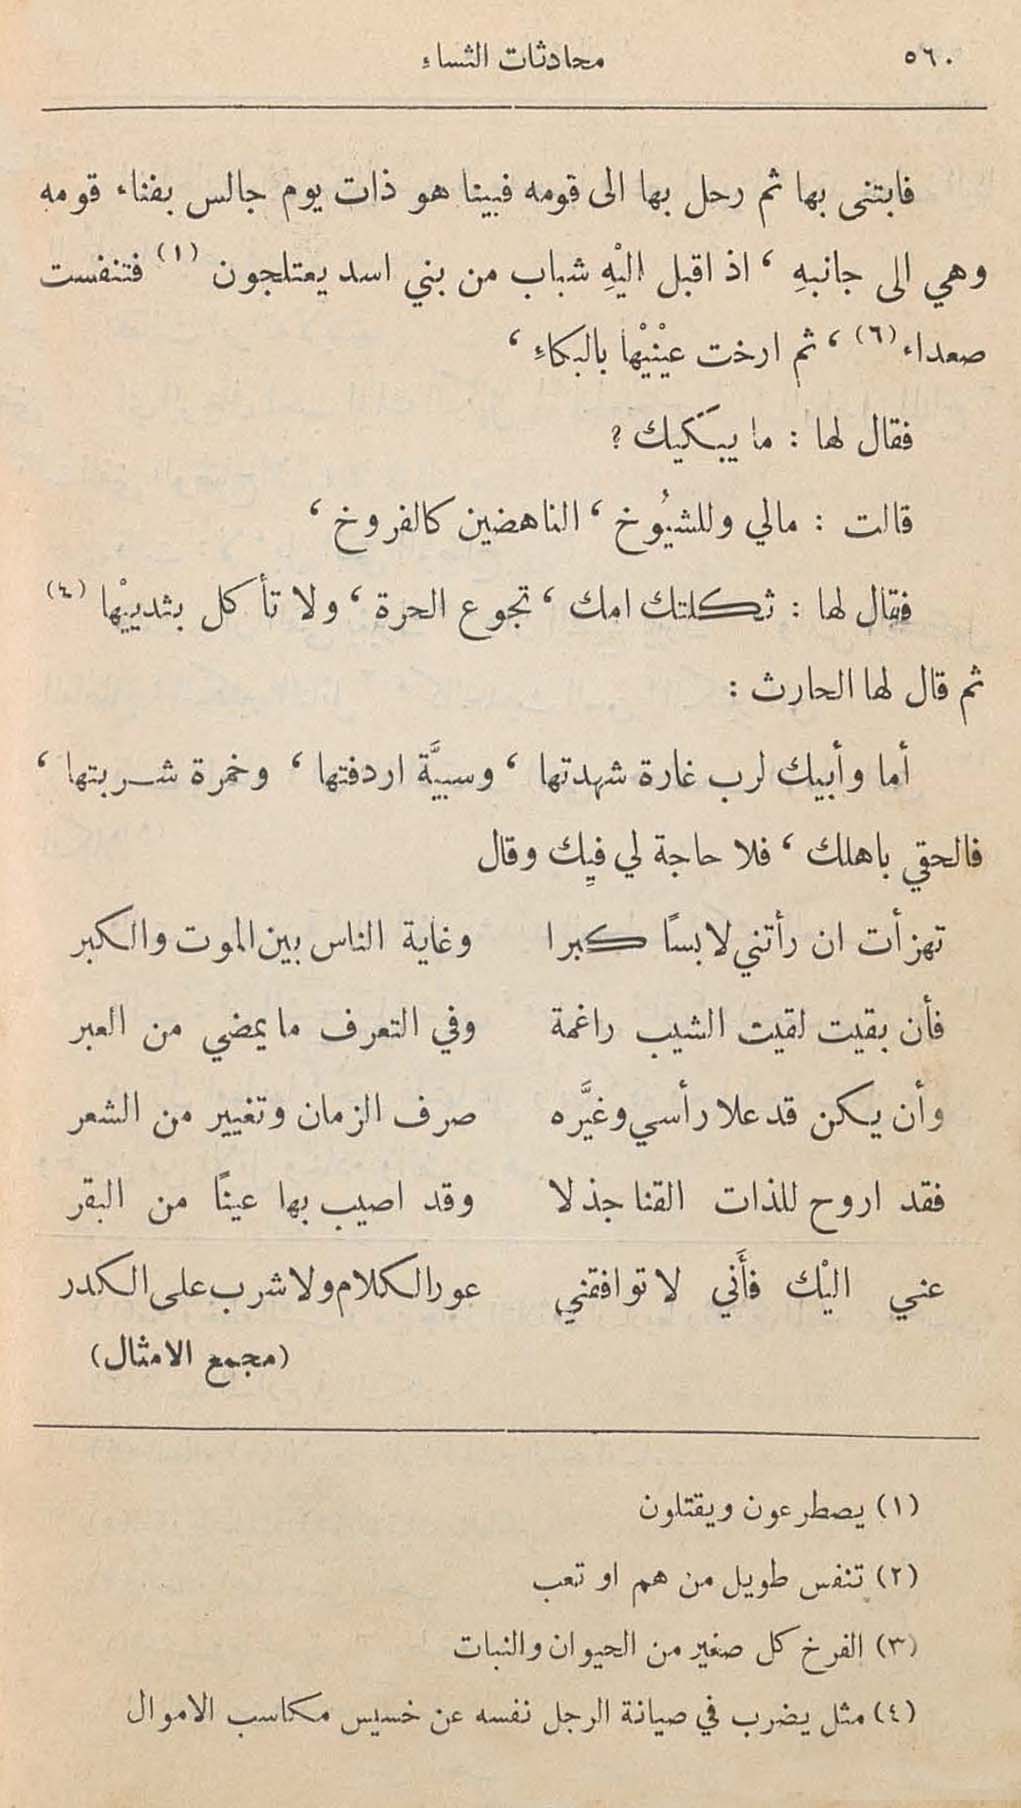 ٥٦٠ محادثات النساء
فابتنى بها ثم رحل بها الى قومه فبينا هو ذات يوم جالس بفناء قومه
وهي الى جانبهِ ، اذ اقبل اليْهِ شباب من بني اسد يعتلجون (١) فتنفست
صعداء (٦) ، ثم ارخت عيْنيْها بالبكاءِ ،
فقال لها : ما يبَكيك ?
قالت : مالي وللشيُوخ ، الناهضين كالفروخ ،
فقال لها : ثكلتك امك ، تجوع الحرة ، ولا تأكل بثدييْها (٤)
ثم قال لها الحارث :
أما وأبيك لرب غارة شهدتها ، وسبيَّة اردفتها ، وخمرة شربتها ،
فالحقي باهلك ، فلا حاجة لي فيِك وقال
تهزأت ان رأتني لابسًا كبرا وغاية الناس بين الموت والكبر
فأن بقيت لقيت الشيب راغمة وفي التعرف ما يمضي من العبر
وأن يكن قد علا رأسي وغيَّره صرف الزمان وتغيير من الشعر
فقد اروح للذات القنا جذلا وقد اصيب بها عينًا من البقر
عني اليْك فأَني لا توافقني عور الكلام ولا شرب على الكدر
(مجمع الامثال)
(١) يصطرعون ويقتلون
(٢) تنفس طويل من هم او تعب
(٣) الفرخ كل صغير من الحيوان والنبات
(٤) مثل يضرب في صيانة الرجل نفسه عن خسيس مكاسب الاموال